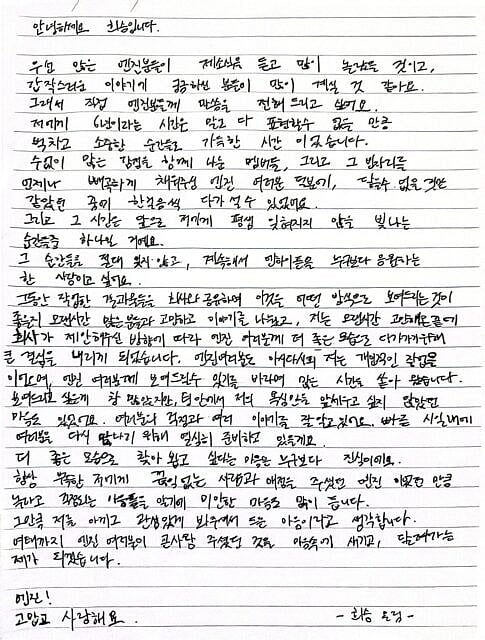 안녕하세요 희승입니다.
우선 많은 엔진분들이 제소식을 듣고 많이 놀랐을 것이고,
갑작스러운 이야기에 궁금하신 분들이 많이 계실 것 같아요.
그래서 직접 엔진분들께 말씀을 전해 드리고 싶어요.
저에게 6년이라는 시간은 말로 다 표현할수 없을 만큼
벅차고 소중한 순간들로 가득한 시간 이었습니다.
수없이 많은 감정을 함께 나눈 멤버들, 그리고 그 빈자리를
언제나 빼곡하게 채워주신 엔진 여러분 덕분에, 닿을수 없을 것만
같았던 꿈에 한걸음씩 다가설 수 있었어요.
그리고 그 시간은 앞으로 저에게 평생 잊혀지지 않을 빛나는
순간들중 하나일 거예요.
그 순간들을 절대 잊지 않고, 계속해서 멤버들을 누구보다 응원하는
한 사람이고 싶어요.
그동안 작업한 결과물들을 회사와 공유하며 이것을 어떤 방식으로 보여드리는것이
좋을지 오랜시간 많은분들과 고민하고 이야기를 나눴고, 저는 오랜시간 고민해온끝에
회사가 제안해주신 방향에 따라 엔진 여러분께 더 좋은 모습으로 다가가기위해
큰 결심을 내리게 되었습니다. 엔진여러분도 아시다시피 저는 개인적인 작업물
이 있으며, 엔진 여러분께 보여드릴수 있기를 바라며 많은 시간을 쏟아 왔습니다.
보여드리고 싶은게 참 많았지만, 팀 안에서 저의 욕심만을 앞세우고 싶지 않았던
마음도 있었어요. 여러분의 걱정과 여러 이야기를 잘 알고있어요. 빠른 시일내에
여러분을 다시 만나기 위해 열심히 준비하고 있을게요.
더 좋은 모습으로 찾아 뵙고 싶다는 마음은 누구보다 진심이에요.
항상 부족한 저에게 끊임없는 사랑과 애정을 주셨던 엔진 이었던 만큼
놀라고 걱정되는 마음들을 알기에 미안한 마음도 많이 듭니다.
그만큼 저를 아끼고 관심있게 봐주셔서 드는 마음이라고 생각합니다.
여태까지 엔진 여러분이 큰사랑 주셨던 것을 마음속에 새기고, 달려가는
제가 되겠습니다.
엔진!
고맙고 사랑해요.
- 희승 올림 -